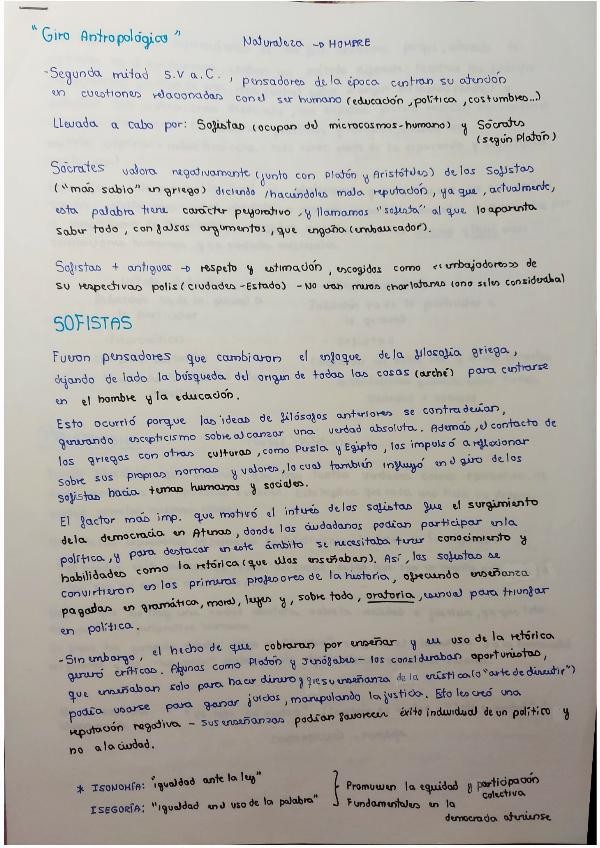 "Giro Antropológico"
Naturaleza → HOMBRE
- Segunda mitad S.V a.C., pensadores de la época centran su atención
en cuestiones relacionadas con el ser humano (educación, política, costumbres...)
Llevada a cabo por: Sofistas (ocupan del microcosmos-humano) y Sócrates
(según Platón)
Sócrates valora negativamente (junto con Platón y Aristóteles) de los Sofistas
("más sabio" en griego) diciendo/haciéndoles mala reputación, ya que, actualmente,
esta palabra tiene carácter peyorativo, y llamamos "sofista" al que lo aparenta
saber todo, con falsos argumentos, que engaña (embaucador).
Sofistas + antiguos → respeto y estimación, escogidos como «embajadores» de
su respectivas polis (ciudades-Estado) - No eran meros charlatanes (no se les consideraba)
SOFISTAS
Fueron pensadores que cambiaron el enfoque de la filosofía griega,
dejando de lado la búsqueda del origen de todas las cosas (arché) para centrarse
en el hombre y la educación.
Esto ocurrió porque las ideas de filósofos anteriores se contradecían,
generando escepticismo sobre alcanzar una verdad absoluta. Además, el contacto de
los griegos con otras culturas, como Persia y Egipto, los impulsó a reflexionar
sobre sus propias normas y valores, lo cual también influyó en el giro de los
sofistas hacia temas humanos y sociales.
El factor más imp. que motivó el interés de los sofistas fue el surgimiento
de la democracia en Atenas, donde los ciudadanos podían participar en la
política, y para destacar en este ámbito se necesitaba tener conocimiento y
habilidades como la retórica (que ellos enseñaban). Así, los sofistas se
convirtieron en los primeros profesores de la historia, ofreciendo enseñanza
pagadas en gramática, moral, leyes y, sobre todo, oratoria, esencial para triunfar
en política.
- Sin embargo, el hecho de que cobraran por enseñar y su uso de la retórica
generó críticas. Algunos como Platón y Jenófabes - los consideraban oportunistas,
que enseñaban solo para hacer dinero y que su enseñanza de la erística (o "arte de discutir")
podía usarse para ganar juicios, manipulando la justicia. Esto les creó una
reputación negativa - sus enseñanzas podían favorecer éxito individual de un político y
no a la ciudad.
* ISONOMÍA: "igualdad ante la ley"
ISEGORÍA: "Igualdad en el uso de la palabra"
Promueven la equidad y participación
colectiva
Fundamentales en la
democracia ateniense